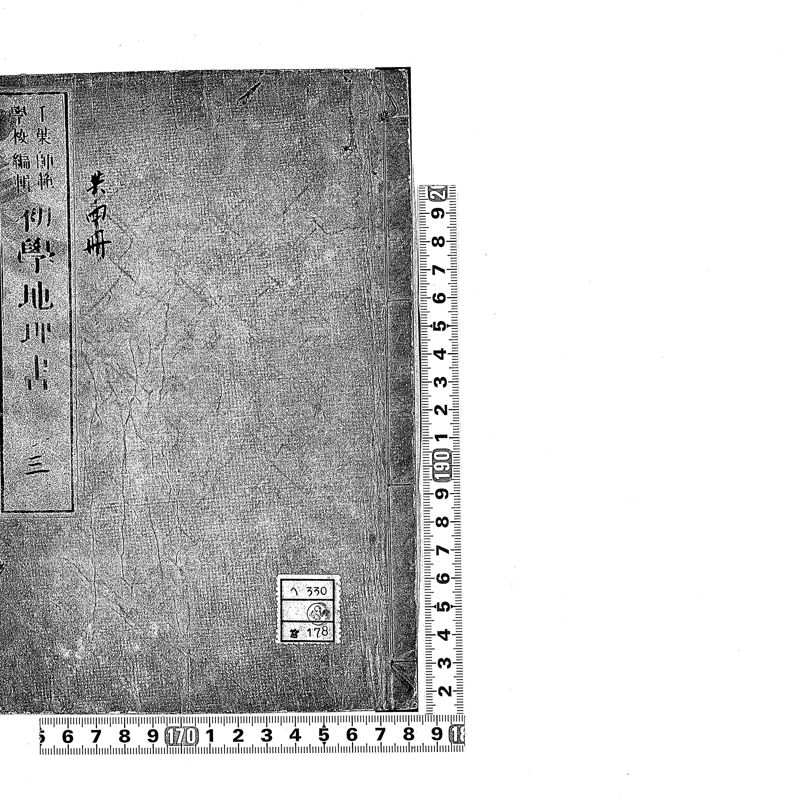 千葉師範
學校編輯
小學地理書
三
共四冊
ヘ 330
178
2 3 4 5 6 7 8 9 190 1 2 3 4 5 6 7 8 9
6 7 8 9 170 1 2 3 4 5 6 7 8 9